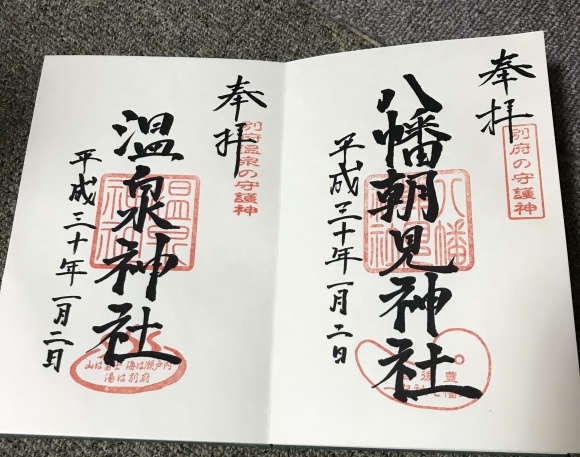 奉拝
別府の守護神
八幡朝見神社
平成三十年一月二日
奉拝
別府温泉の守護神
温泉神社
平成三十年一月二日
山は富士 海は瀬戸内
湯は別府